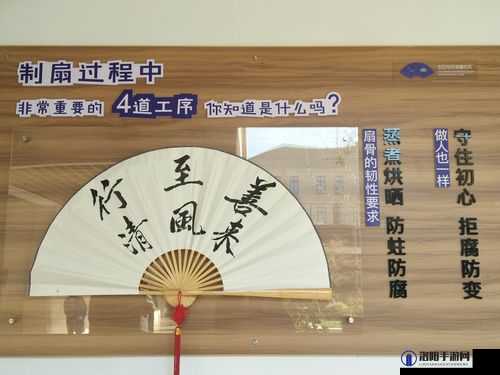 制扇过程中
非常重要的4道工序 你知道是什么吗？
善来
至風
行清
扇骨的韧性要求
蒸煮烘晒 防蛀防腐
做人也一样
守住初心 拒腐防变
洛阳手游网